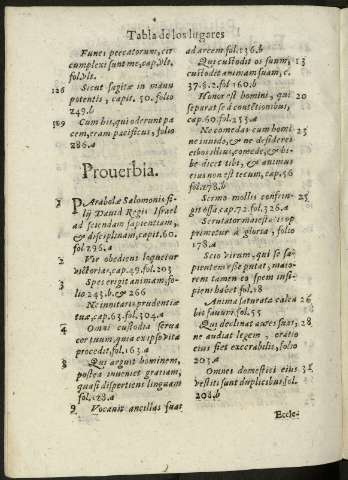 Tabla de los lugares
Funes peccatorum, cir
cumplexi sunt me, cap. vlt.
fol. vlt.
126 Sicut sagitæ in manu
potentis, capit. 50. folio
249.b
119 Cum his, qui oderunt pa
cem, eram pacificus, folio
286.a
Prouerbia.
1 PArabolæ Salomonis fi
lij Dauid Regis Israel
ad sciendam sapientiam,
& disciplinam, capit. 60.
fol 296.a
2 Vir obediens loquetur
victorias, cap. 49. fol. 203
3 Spes erigit animam, fo
lio 243.b. & 266
Ne innitaris prudentiæ
tuæ, cap. 63. fol. 304.a
4 Omni custodia serua
cor tuum, quia ex ipso vita
procedit, fol. 163.a
8 Qui arguit hominem,
postea inueniet gratiam,
quasi dispertiens linguam
fol. 128.a
9 Vocauit ancillas suas
ad arcem fol. 136.b
Qui custodit os suum, 13
custodit animam suam, c.
37. §. 2. fol 160.b
Honor est homini, qui 20
separat se à contẽtionibus,
cap. 60. fol. 253.a
Ne comedas cum homi 23
ne inuido, & ne desideres
cibos illius, comede, & bi-
be dicet tibi, & animus
eius non est tecum, cap. 56
fol. 278.b
Sermo mollis confrin- 25
git ossa cap. 72. fol. 326.a
Scrutator maiestatis op
primetur à gloria, folio
178.a
Scio virum, qui se sa-
pientem esse putat, maio-
rem tamen eo spem insi-
piens habet fol. 18
Anima saturata calca 26
bit fauum fol. 55
Qui declinat aures suas, 28
ne audiat legem, oratio
eius fiet execrabilis, folio
203.a
Omnes domestici eius 31
vestiti sunt duplicibus fol.
208.b
Eccle-